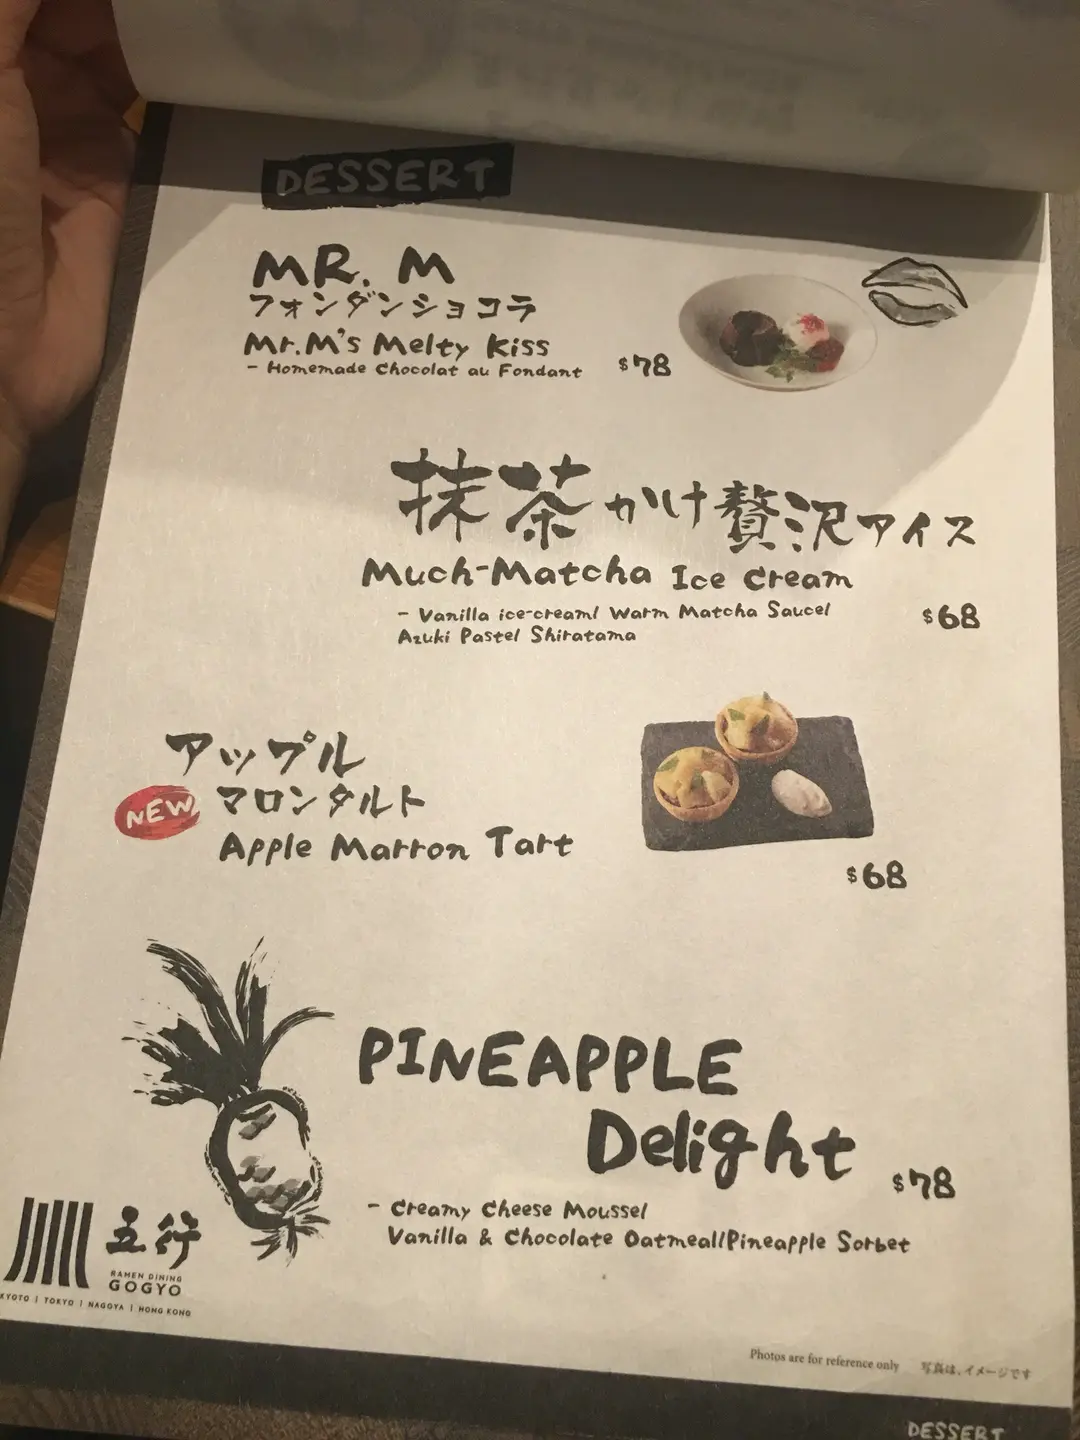 DESSERT
MR. M
フォンダンショコラ
Mr.M's Melty Kiss
- Homemade Chocolat au Fondant
$78
抹茶かけ贅沢アイス
Much-Matcha Ice Cream
- Vanilla ice-cream/ Warm Matcha Sauce/
Azuki Paste/ Shiratama
$68
アップル
NEW
マロンタルト
Apple Marron Tart
$68
PINEAPPLE
Delight
$78
- Creamy Cheese Mousse/
Vanilla & Chocolate Oatmeal/Pineapple Sorbet
五行
RAMEN DINING
GOGYO
KYOTO | TOKYO | NAGOYA | HONG KONG
Photos are for reference only 写真は、イメージです
DESSERT